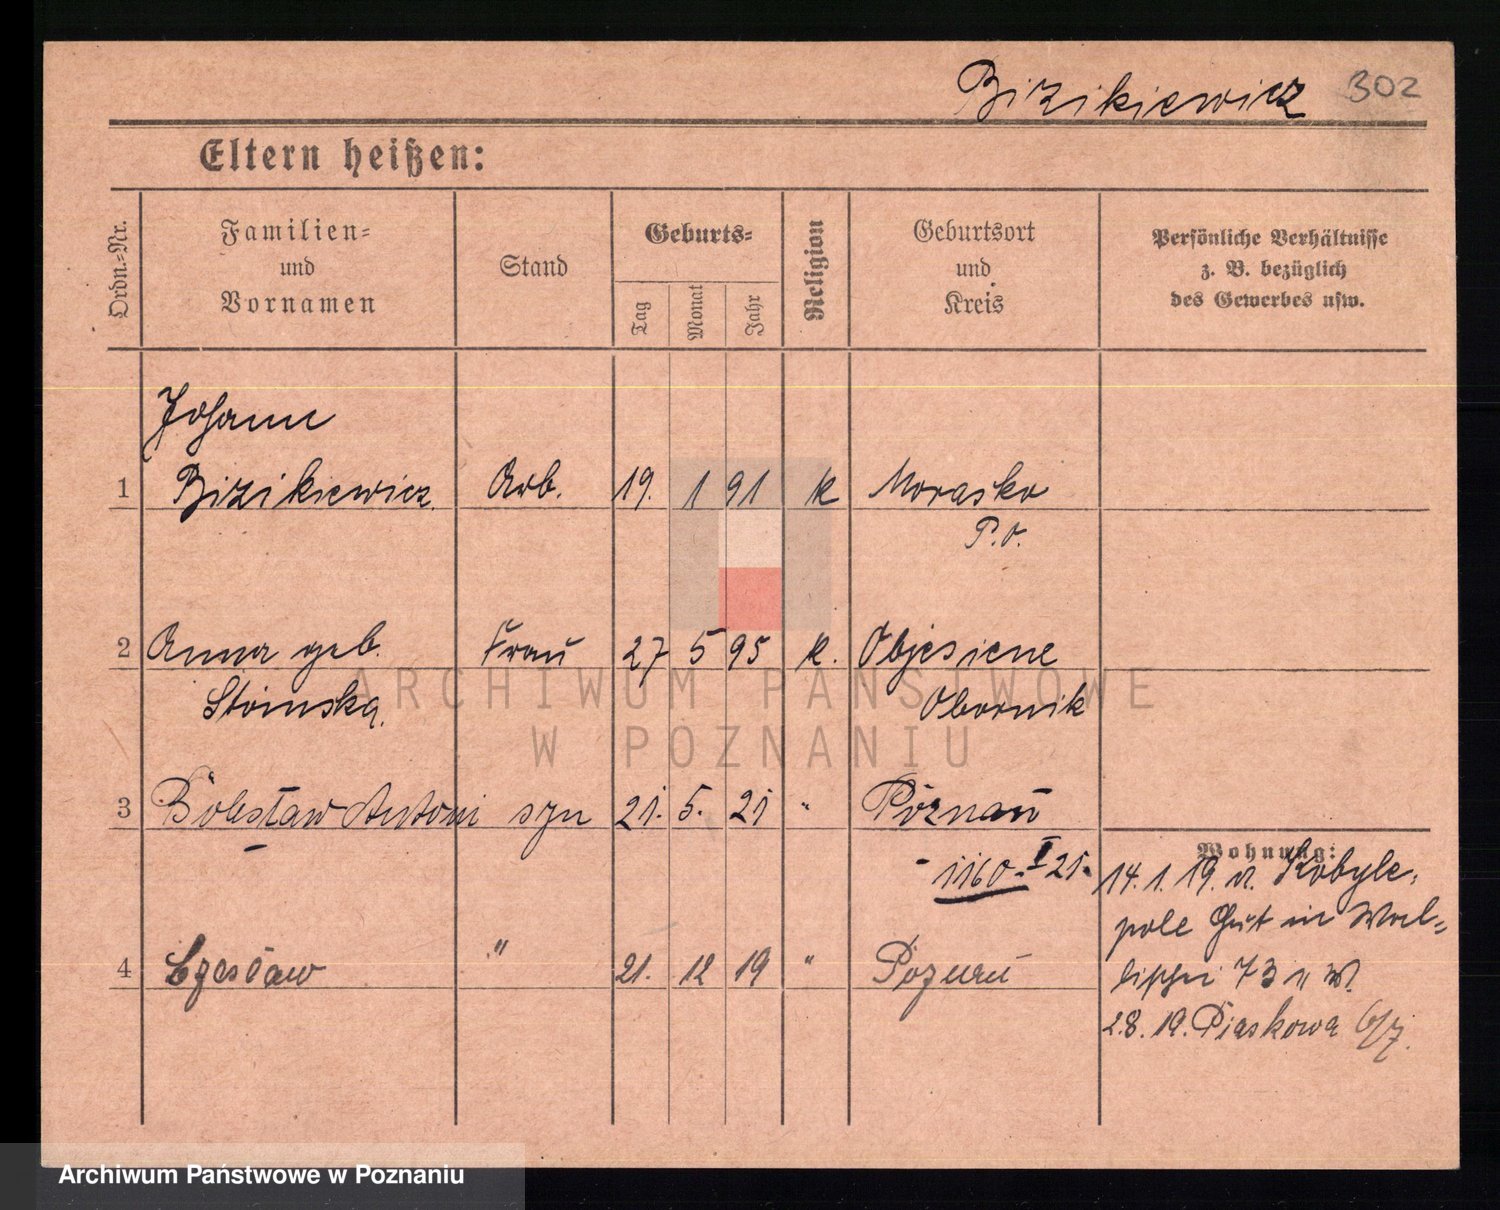 Bizikiewicz 302
Eltern heißen:
Ordn.-Nr.
Familien-
und
Vornamen
Stand
Geburts-
Tag
Monat
Jahr
Religion
Geburtsort
und
Kreis
Persönliche Verhältnisse
z. B. bezüglich
des Gewerbes usw.
Johann
1 Bizikiewicz Arb. 19. 1 91 k Morasko
P.O.
2 Anna geb. Frau 27 5 95 k. Objesiene
Obornik
3 Bolesław Antoni syn 21. 5. 21 " Poznań
- 1160 - I 21.
Wohnung:
14. 1. 19. v. Kobyle-
pole Gut in Wal-
lischei 73 v W.
4 Czesław " 21. 12 19 " Poznań
2.8.19. Piaskowa 6/7.
ARCHIWUM PAŃSTWOWE
W POZNANIU
Archiwum Państwowe w Poznaniu